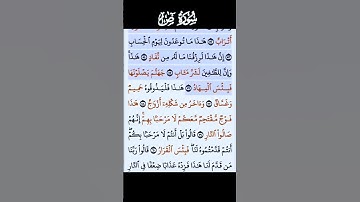 سُورَةُ صٓ
أَتْرَابٌ ۝ هَـٰذَا مَا تُوعَدُونَ لِيَوْمِ ٱلْحِسَابِ
۝ إِنَّ هَـٰذَا لَرِزْقُنَا مَا لَهُۥ مِن نَّفَادٍ ۝ هَـٰذَا
وَإِنَّ لِلطَّـٰغِينَ لَشَرَّ مَـَٔابٍ ۝ جَهَنَّمَ يَصْلَوْنَهَا
فَبِئْسَ ٱلْمِهَادُ ۝ هَـٰذَا فَلْيَذُوقُوهُ حَمِيمٌ
وَغَسَّاقٌ ۝ وَءَاخَرُ مِن شَكْلِهِۦٓ أَزْوَٰجٌ ۝ هَـٰذَا
فَوْجٌ مُّقْتَحِمٌ مَّعَكُمْ لَا مَرْحَبًۢا بِهِمْ إِنَّهُمْ
صَالُوا۟ ٱلنَّارِ ۝ قَالُوا۟ بَلْ أَنتُمْ لَا مَرْحَبًۢا بِكُمْ
أَنتُمْ قَدَّمْتُمُوهُ لَنَا فَبِئْسَ ٱلْقَرَارُ ۝ قَالُوا۟ رَبَّنَا
مَن قَدَّمَ لَنَا هَـٰذَا فَزِدْهُ عَذَابًا ضِعْفًا فِى ٱلنَّارِ